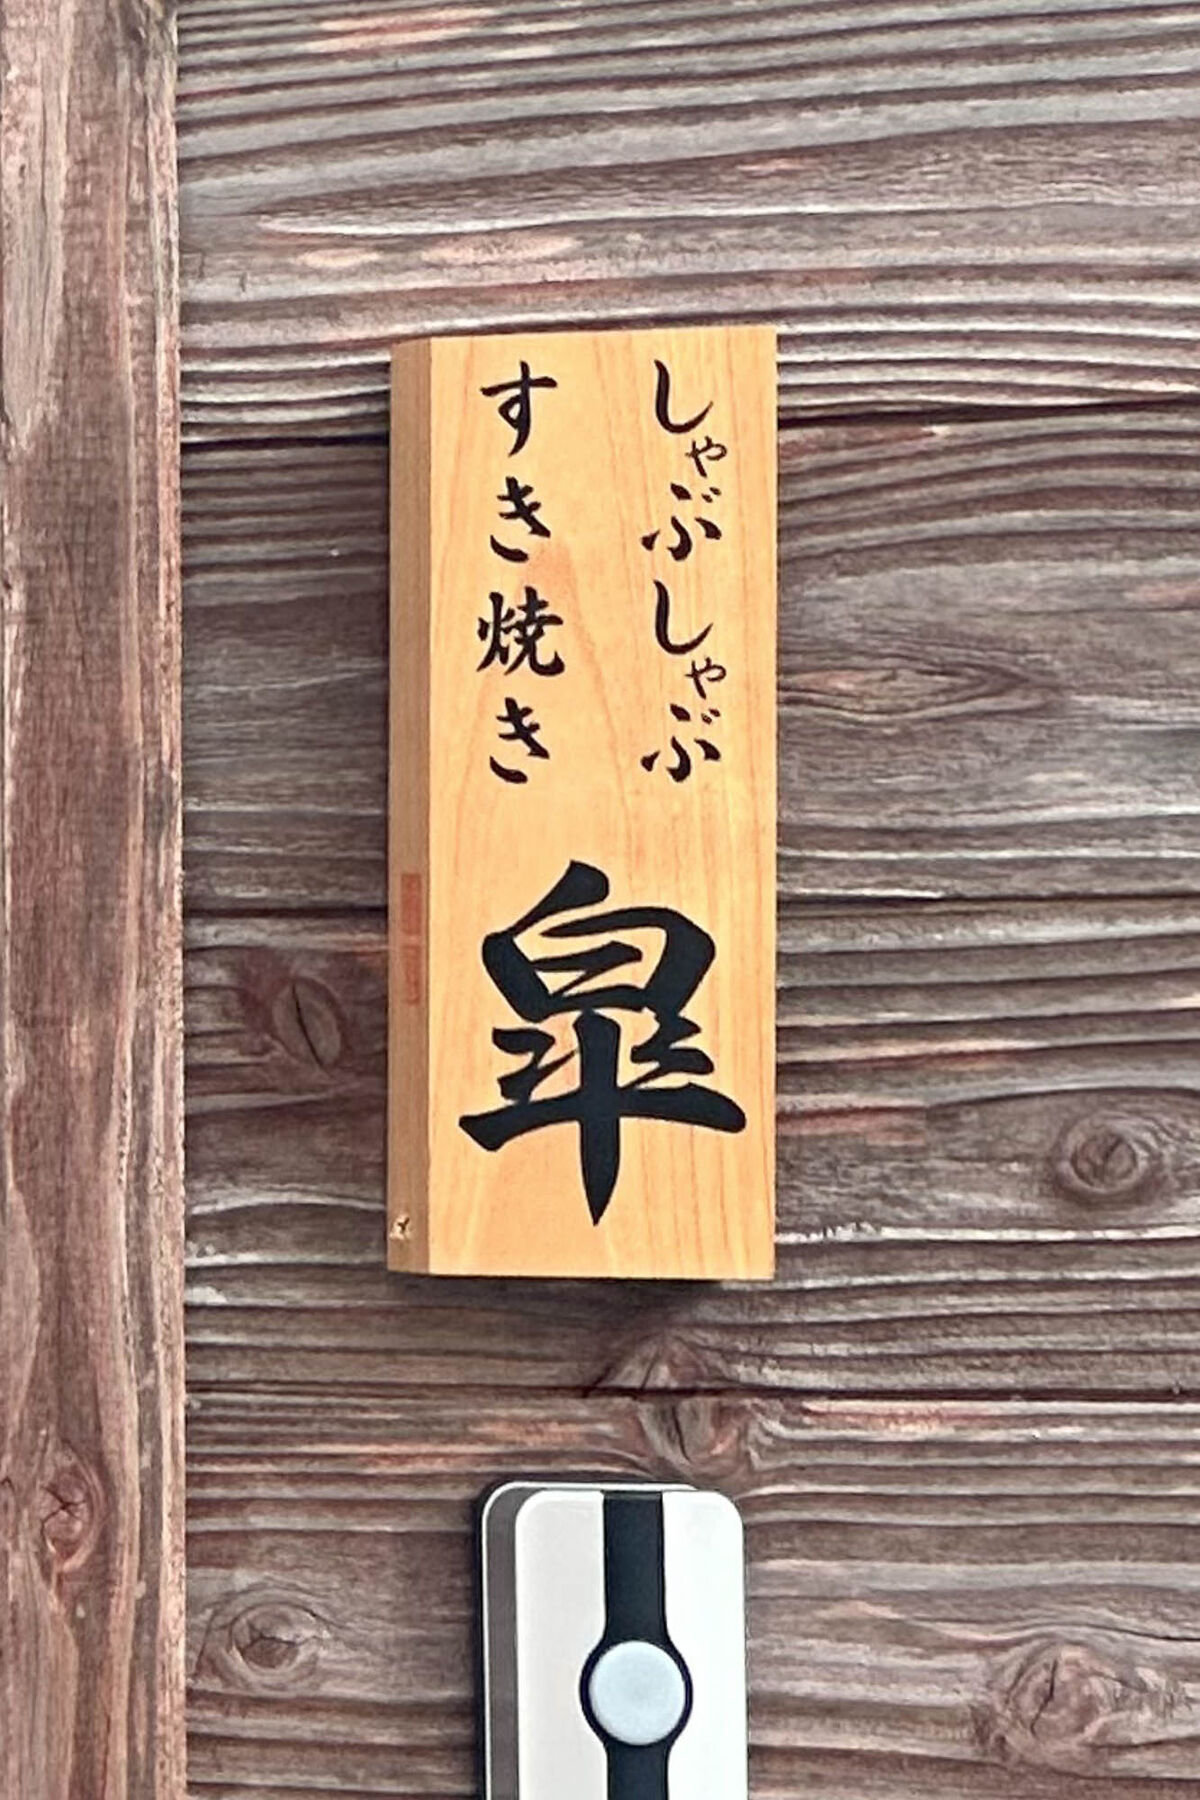 しゃぶしゃぶ
すき焼き
皐